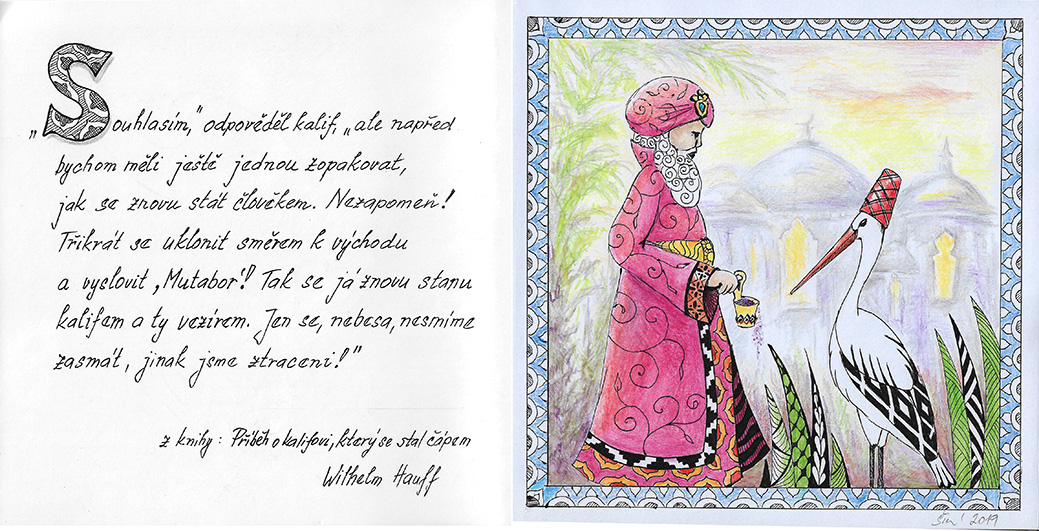 „Souhlasím,“ odpověděl kalif, „ale napřed
bychom měli ještě jednou zopakovat,
jak se znovu stát člověkem. Nezapomeň!
Třikrát se uklonit směrem k východu
a vyslovit ‚Mutabor‘! Tak se já znovu stanu
kalifem a ty vezírem. Jen se, nebesa, nesmíme
zasmát, jinak jsme ztraceni!“
z knihy: Příběh o kalifovi, který se stal čápem
Wilhelm Hauff
2019